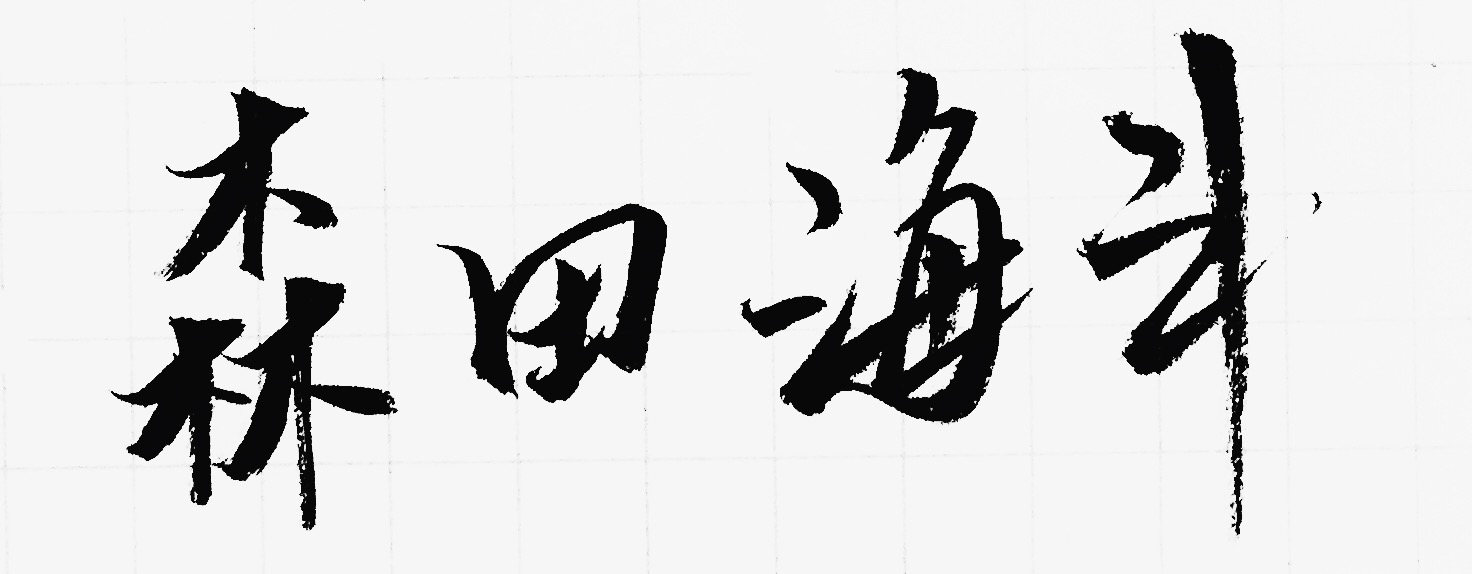 森田海斗